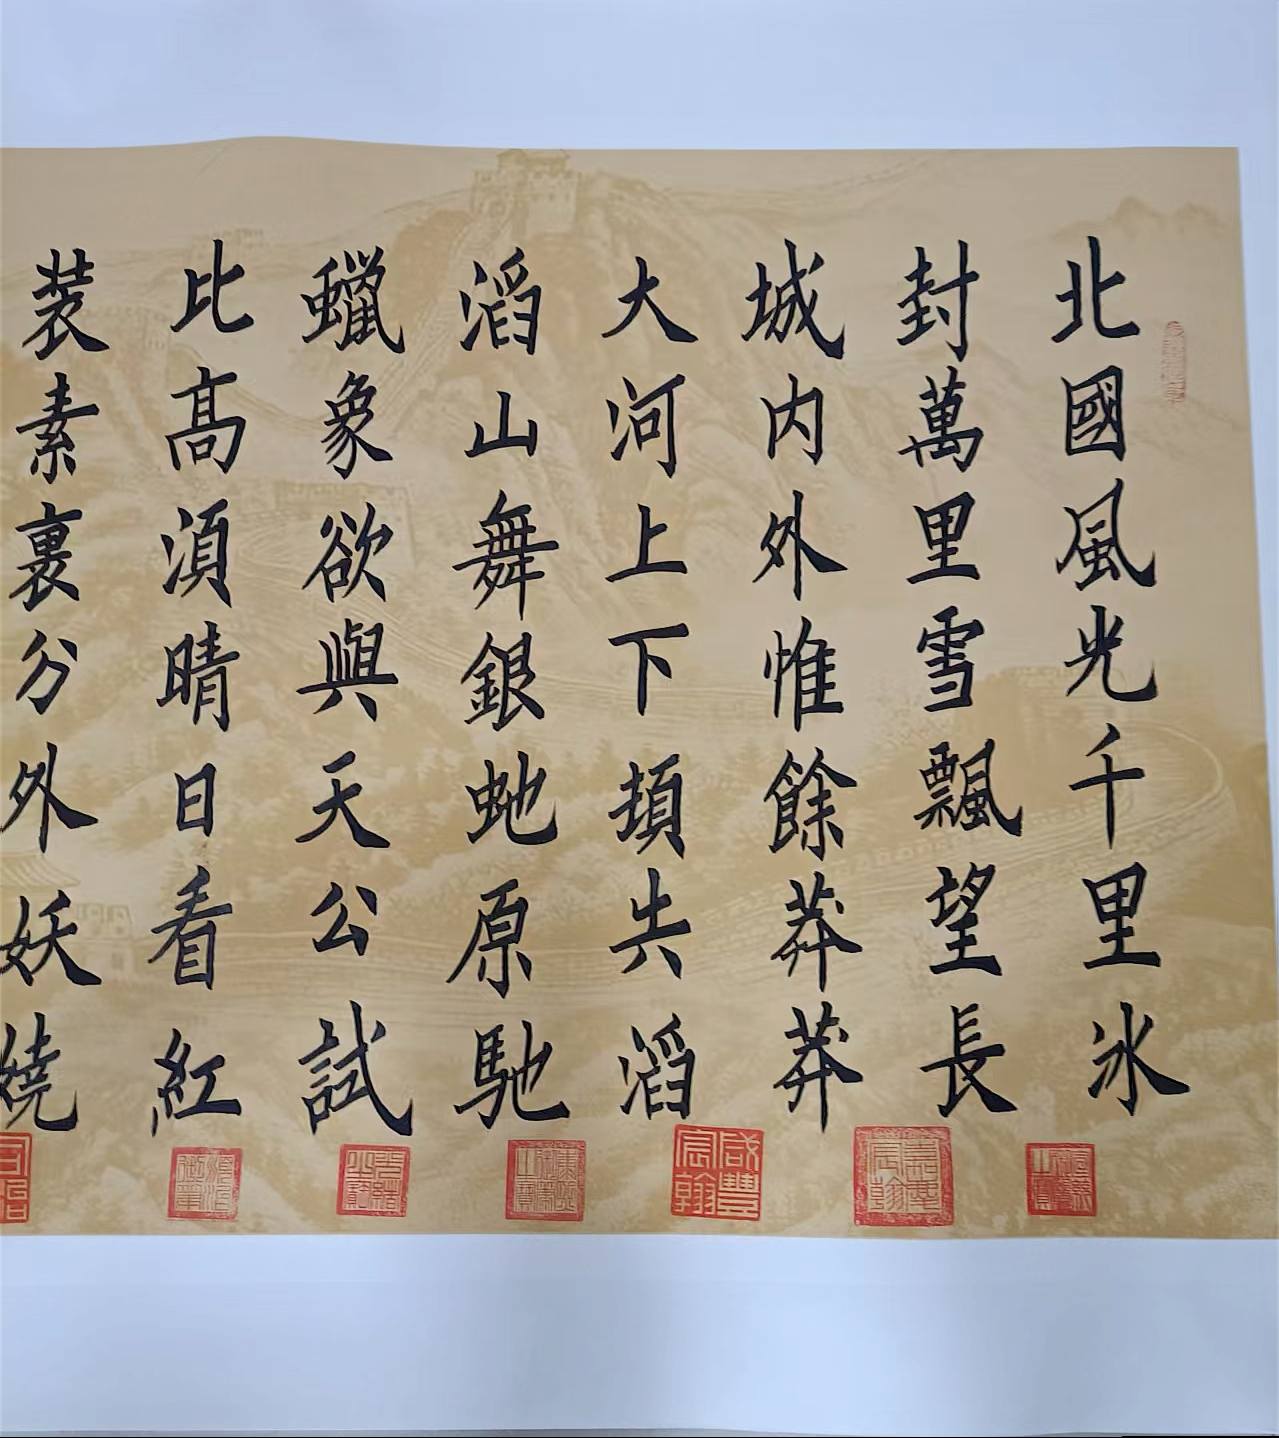 北國風光千里冰
封萬里雪飄望長
城内外惟餘莽莽
大河上下頓失滔
滔山舞銀蛇原馳
蠟象欲與天公試
比高須晴日看紅
装素裹分外妖嬈
嘉慶宸翰
咸豐宸翰